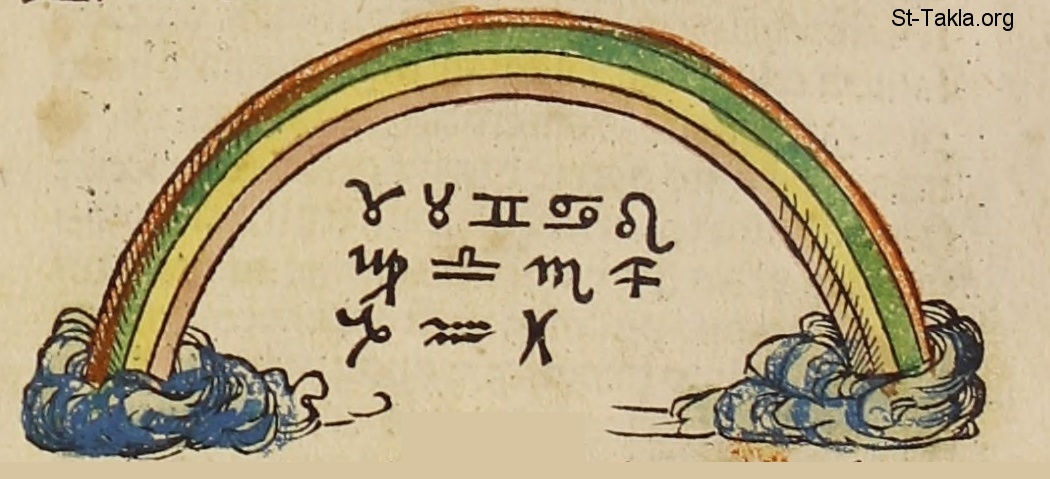 St-Takla.org
♈ ♉ ♊ ♋ ♌
♍ ♎ ♏ ♐
♑ ♒ ♓